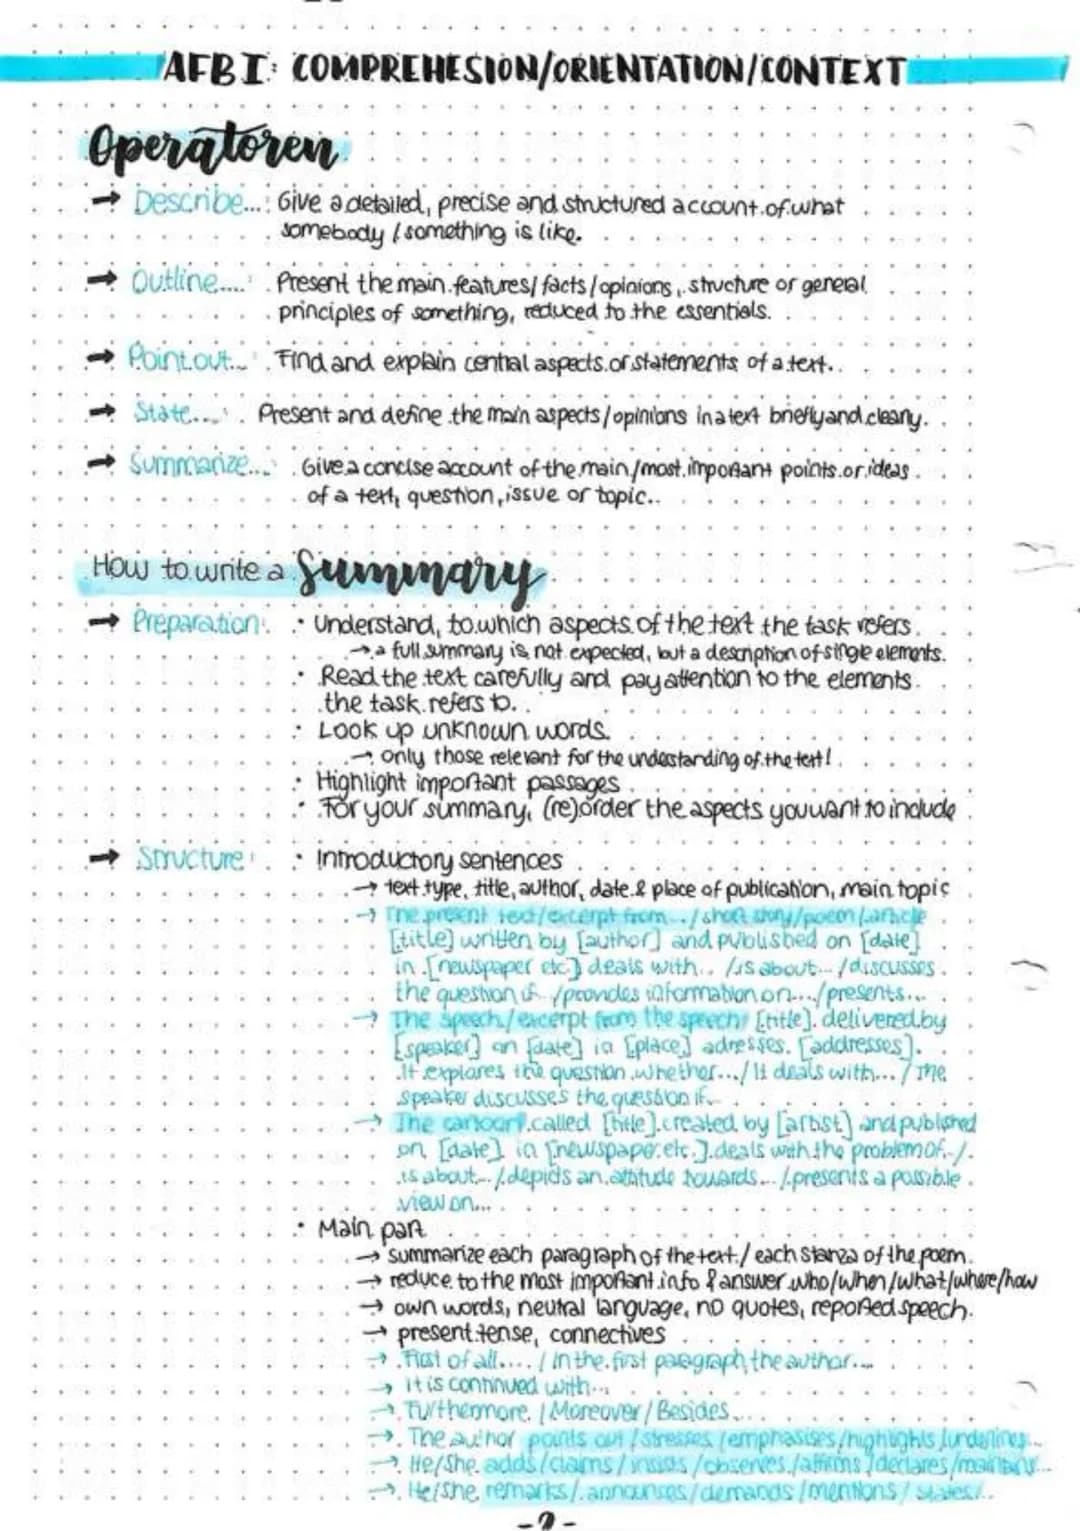 AFB I: COMPREHESION/ORIENTATION/CONTEXT
Operatoren
→ Describe...: Give a detailed, precise and structured account of what
somebody / something is like.
→ Outline....: Present the main features/ facts/opinions, structure or general
principles of something, reduced to the essentials.
→ Point out...: Find and explain central aspects or statements of a text.
→ State....: Present and define the main aspects/opinions in a text briefly and cleary.
→ Summarize...: Give a concise account of the main/most important points or ideas
of a text, question, issue or topic.
How to write a Summary
→ Preparation: • Understand, to which aspects of the text the task refers.
→ a full summary is not expected, but a description of single elements.
• Read the text carefully and pay attention to the elements
the task refers to.
• Look up unknown words.
→ only those relevant for the understanding of the text!
• Highlight important passages
• For your summary, (re)order the aspects you want to include
→ Structure: • Introductory sentences
→ text type, title, author, date & place of publication, main topic
→ The present text/excerpt from.../short story/poem/article
[title] written by [author] and published on [date]
in [newspaper etc.] deals with.../is about.../discusses
the question if.../provides information on.../presents...
→ The speech/excerpt from the speech [title] delivered by
[speaker] on [date] in [place] adresses [addresses].
It explores the question whether.../It deals with.../The
speaker discusses the question if...
→ The cartoon called [title] created by [artist] and published
on [date] in [newspaper etc.] deals with the problem of.../
is about.../depicts an attitude towards.../presents a possible
view on...
• Main part
→ summarize each paragraph of the text/each stanza of the poem.
→ reduce to the most important info & answer who/when/what/where/how
→ own words, neutral language, no quotes, reported speech.
→ present tense, connectives
→ First of all..../In the first paragraph, the author...
→ it is continued with...
→ Furthermore/Moreover/Besides...
→ The author points out/stresses/emphasises/highlights/underlines...
→ He/She adds/claims/insists/observes/affirms/declares/maintains...
→ He/She remarks/announses/demands/mentions/states...
-2-